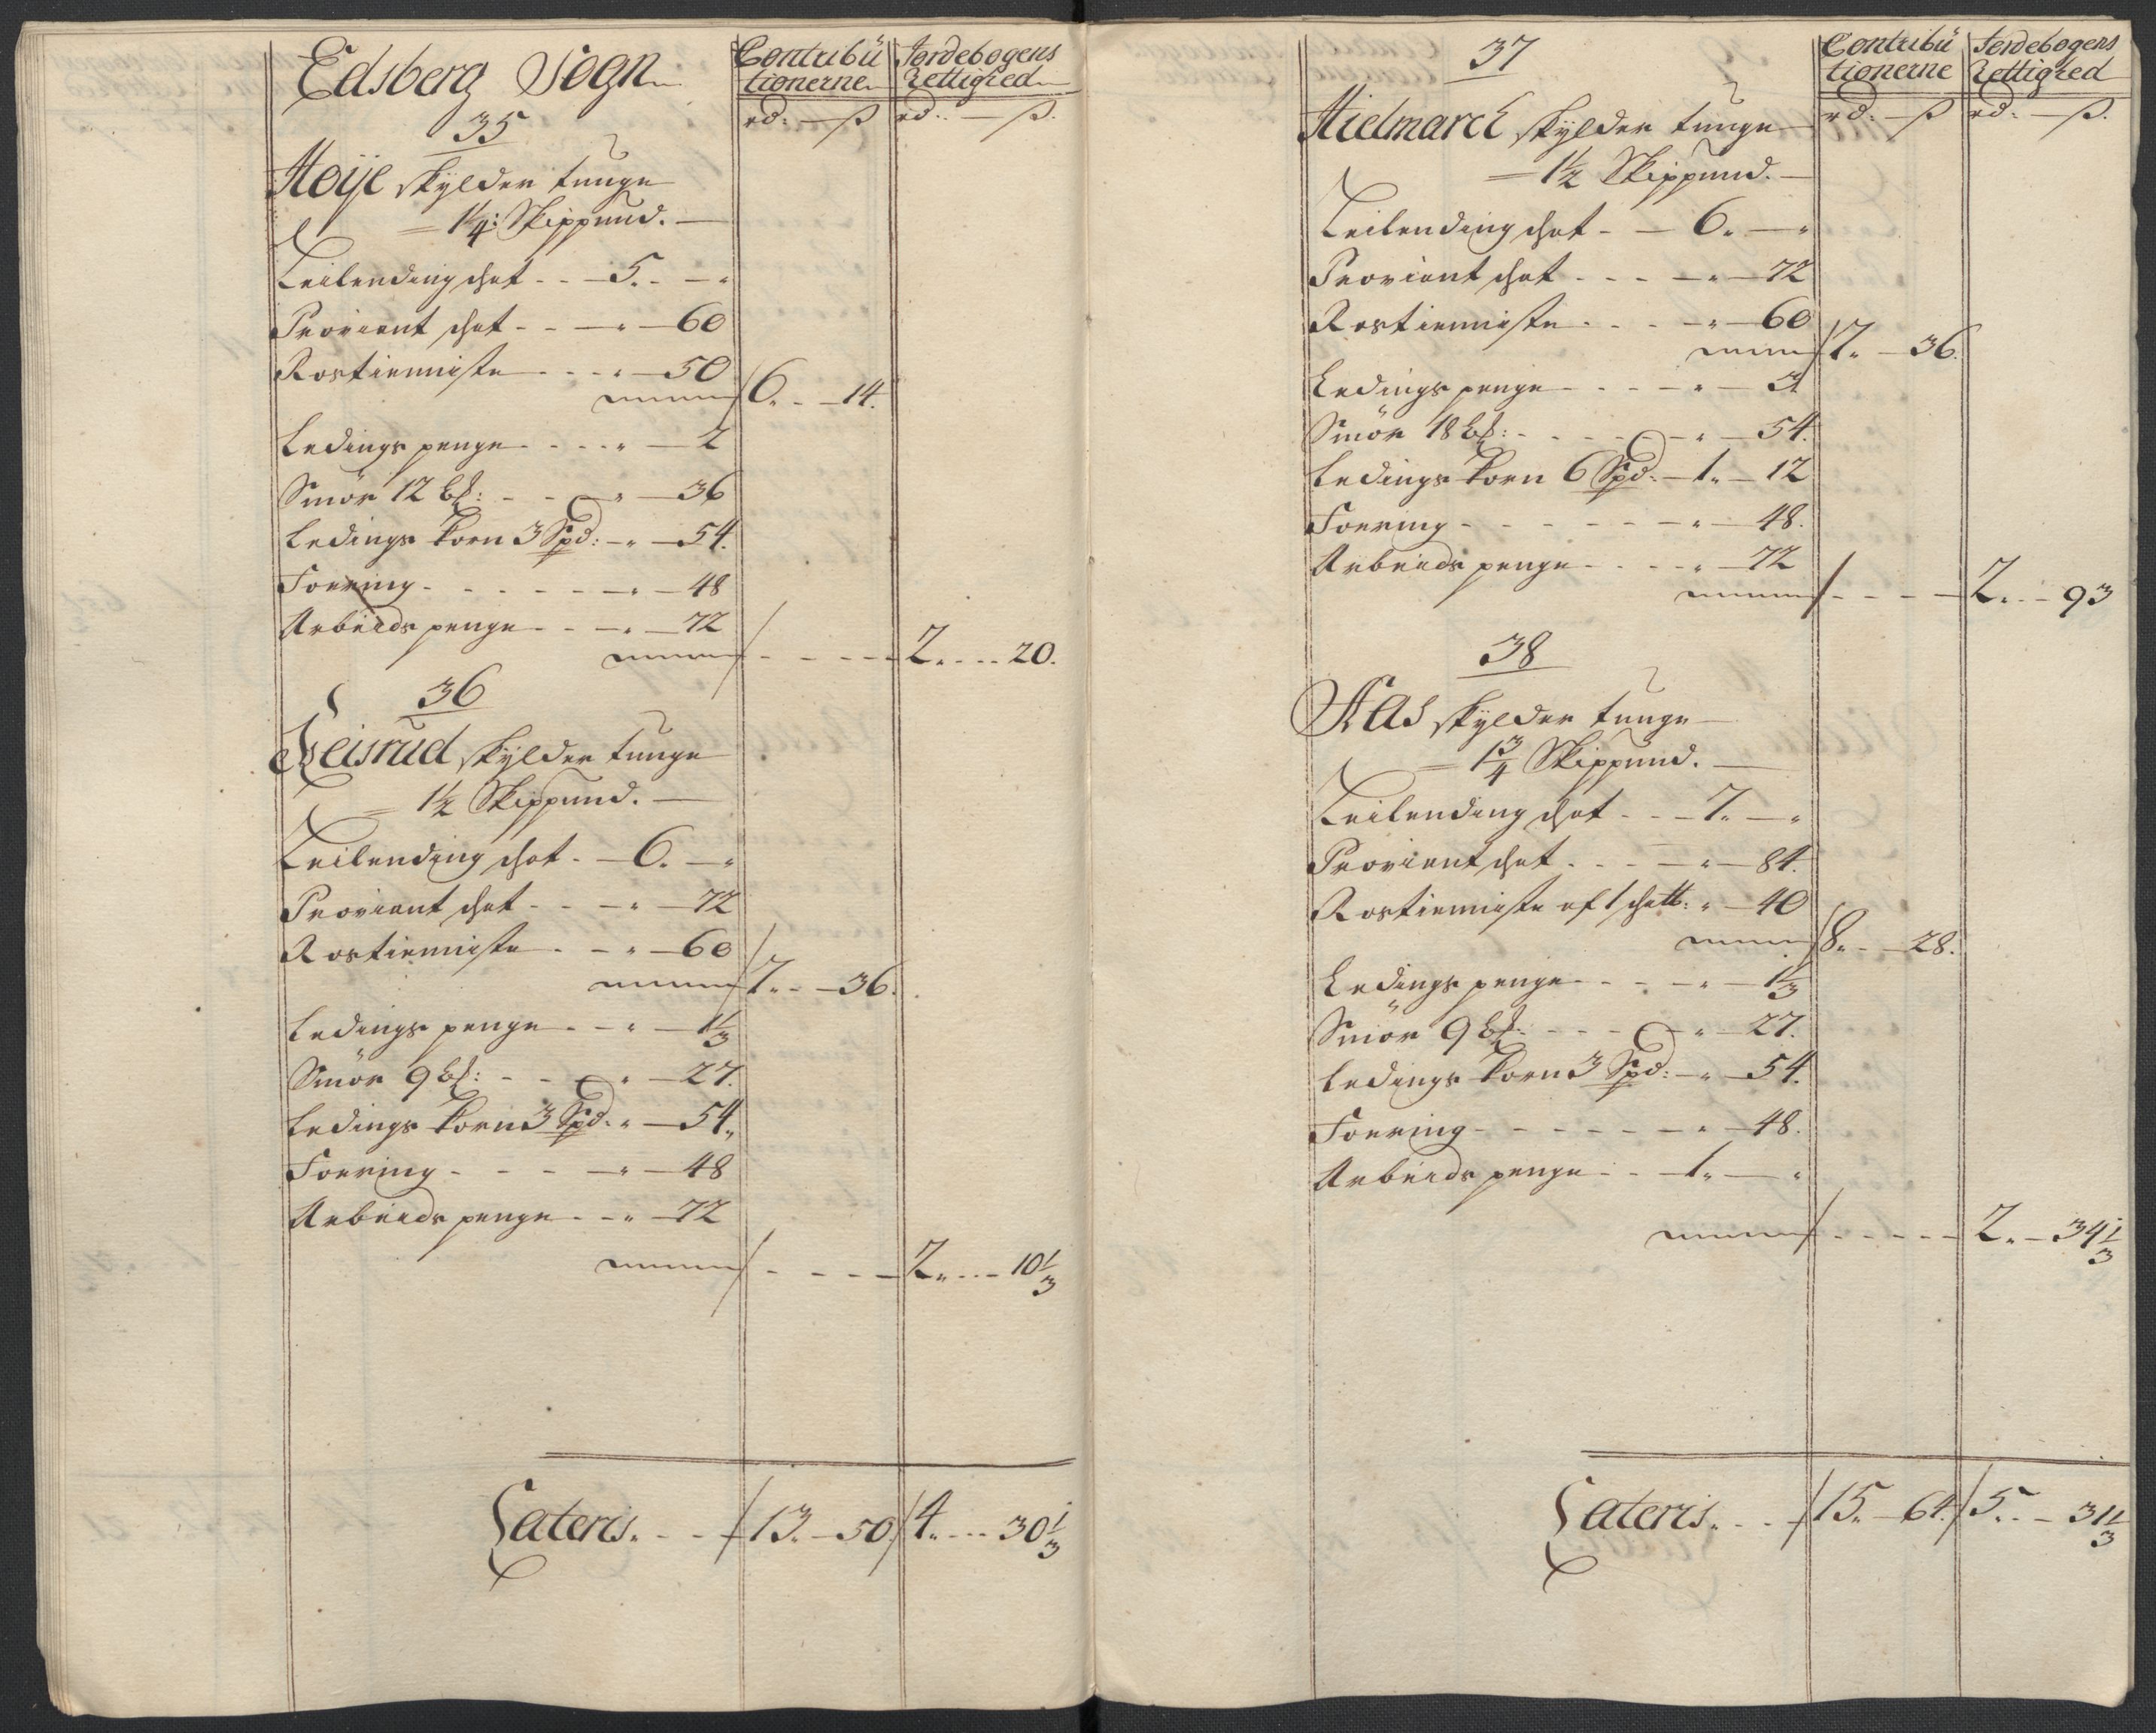 Edsberg Sogn
Contribü
tionerne
Jordebogens
Rettighed
rd: — ß
rd: — ß.
35
Høÿe skÿlder tunge
1¼: Skippund.
Leilending schat - - 5. - "
Proviant schat - - " - 60
Rostienniste - - - " - 50
6. - 14.
Ledings penge - - - " - 2
Smör 12 bß: - - " - 36
Ledings korn 3 Spd: - " - 54.
Foering - - - - - " - 48
Arbeids penge - - " - 72
2. - - 20.
36
Reisrud skÿlder tunge
1½ Skippund.
Leilending schat - 6. - "
Proviant schat - - - " - 72
Rostienniste - - " - 60
7. - - 36.
Ledings penge - - " - 1⅓
Smör 9 bß: - - " - 27.
Ledings korn 3 Spd: " - 54"
Foering - - - - " - 48
Arbeids penge - - " - 72
2. - - 10⅓
Lateris. - - 13. - 50. 4. - - 30⅓
Contribü
tionerne
Jordebogens
Rettighed
rd: — ß
rd: — ß.
37
Hielmarck skÿlder tunge
1½ Skippund.
Leilending schat - - 6. - "
Proviant schat - - - " - 72
Rostienniste - - - " - 60
7. - 36.
Ledings penge - - - - " - 3
Smör 18 bß: - - - - " - 54.
Ledings korn 6 Spd: - 1. - 12
Foering - - - - - - " - 48.
Arbeids penge - - - " - 72
2. - - 93
38
Aas skÿlder tunge
1¾ Skippund.
Leilending schat - - - 7. - "
Proviant schat - - - " - 84.
Rostienniste af 1 schatt: " - 40
8. - - 28.
Ledings penge - - - " - 1⅓
Smör 9 bß: - - - " - 27.
Ledings korn 3 Spd: - " - 54.
Foering - - - - - - " - 48.
Arbeids penge - - 1. - "
2. - 34⅓
Lateris. - - 15. - 64. 5. - - 31⅓